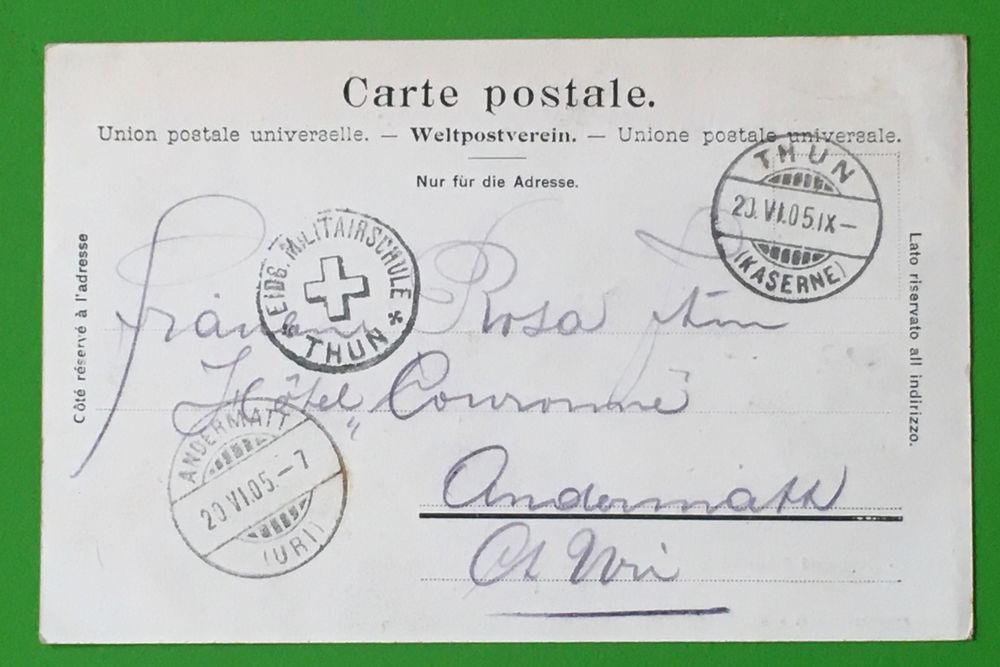 Carte postale.
Union postale universelle. — Weltpostverein. — Unione postale universale.
Nur für die Adresse.
Côté réservé à l'adresse
Lato riservato all indirizzo.
THUN
20.VI.05.IX—
(KASERNE)
EIDG. MILITAIRSCHULE
* THUN *
Rosa
Hôtel "Couronne"
Andermatt
Ct Uri
ANDERMATT
20.VI.05.-7
(URI)